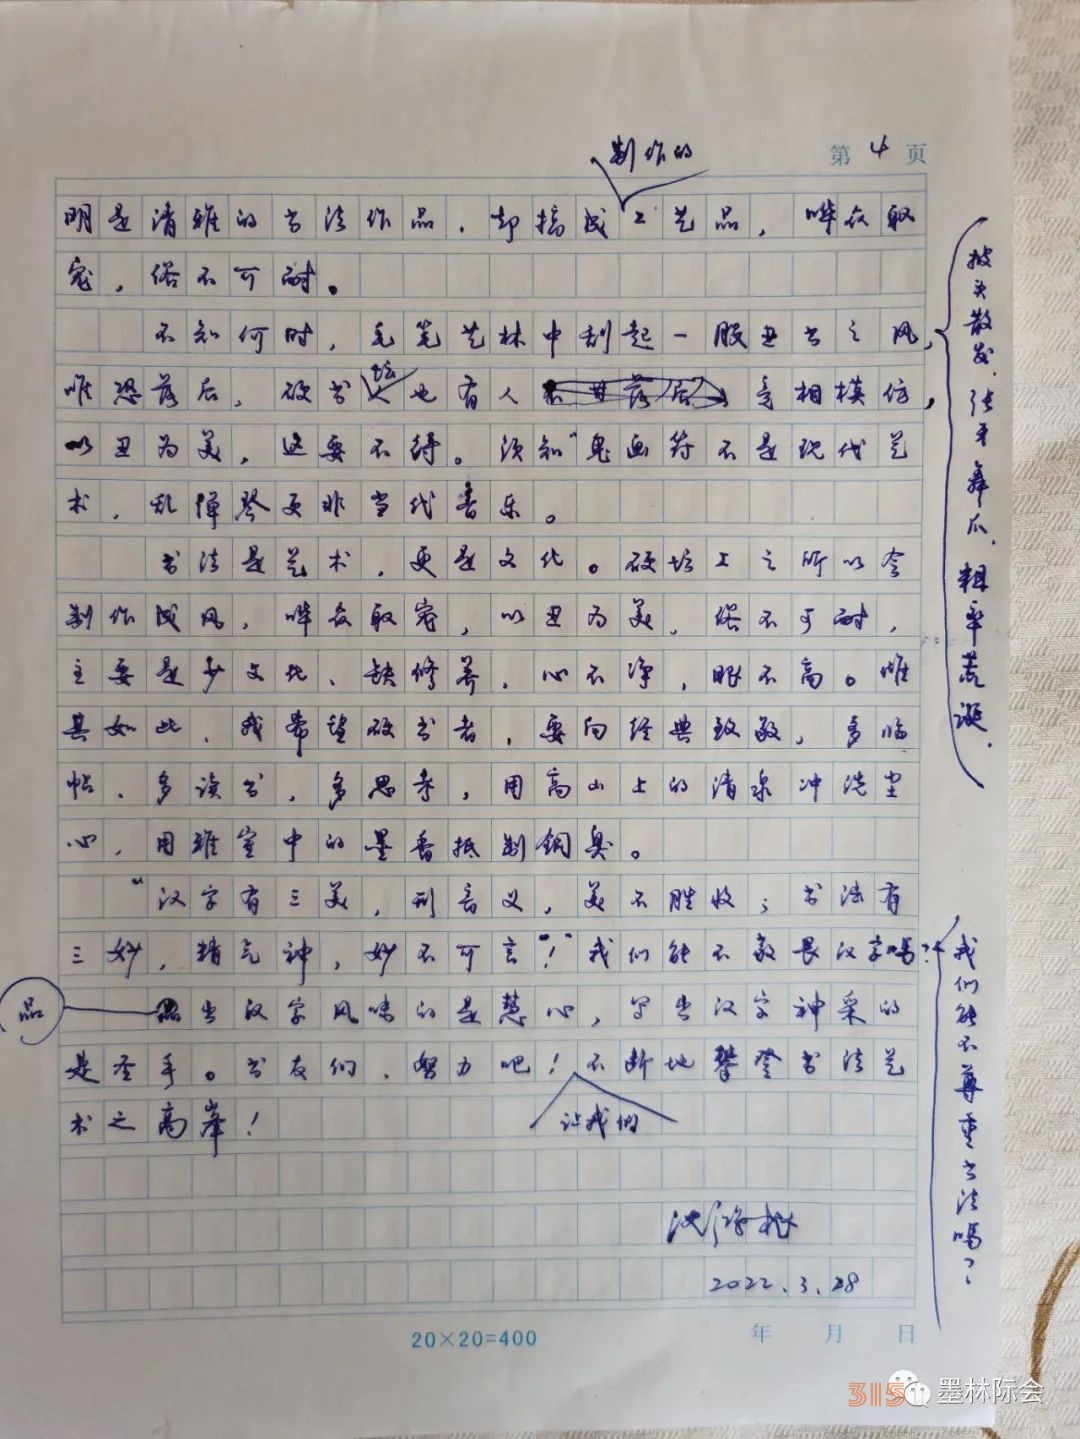 第 4 页
制作的
明是清雅的书法作品，却搞成工艺品，哗众取
宠，俗不可耐。
不知何时，毛笔艺林中刮起一股丑书之风，
披头散发、张牙舞爪、粗率荒诞，
坛
唯恐落后，硬书也有人竞相模仿，
以丑为美，这要不得。须知“鬼画符不是现代艺
术，乱弹琴更非当代音乐。
书法是艺术，更是文化。硬坛上之所以会
制作成风，哗众取宠，以丑为美，俗不可耐，
主要是少文化、缺修养，心不净，眼不高。惟
其如此，我希望硬书者，要向经典致敬，多临
帖、多读书，多思考，用高山上的清泉冲洗尘
心，用雅室中的墨香抵制铜臭。
“汉字有三美，形音义，美不胜收；书法有
三妙，精气神，妙不可言”！我们能不敬畏汉字吗？
我们能不尊重书法吗？
品
品出汉字风味的是慧心，写出汉字神采的
是圣手。书友们，努力吧！不断地攀登书法艺
让我们
术之高峰！
沈鸿根
2022.3.28
20×20=400
年 月 日
315
墨林际会